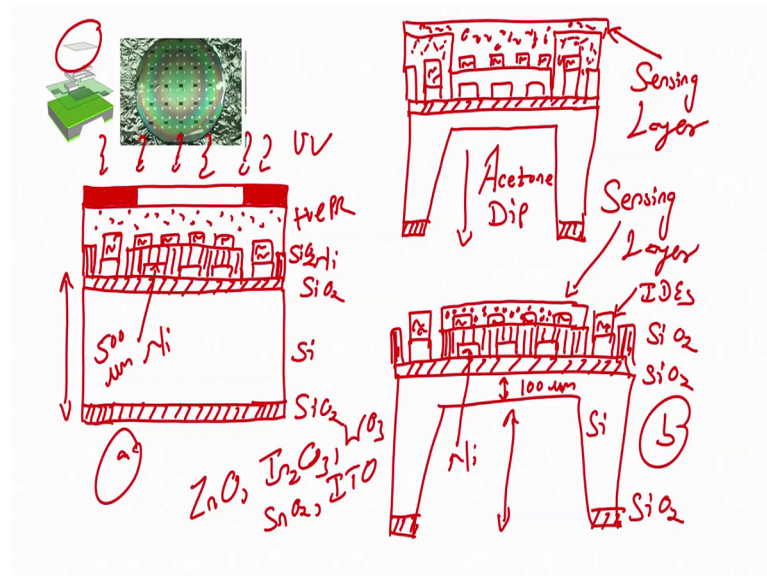 UV
+ve PR
SiO2 Ni
SiO2
500 um Ni
Si
SiO2
WO3
a
ZnO, In2O3,
SnO2, ITO
Sensing
Layer
Acetone
Dip
Sensing
Layer
IDEs
SiO2
SiO2
100 um
Si
Ni
b
SiO2